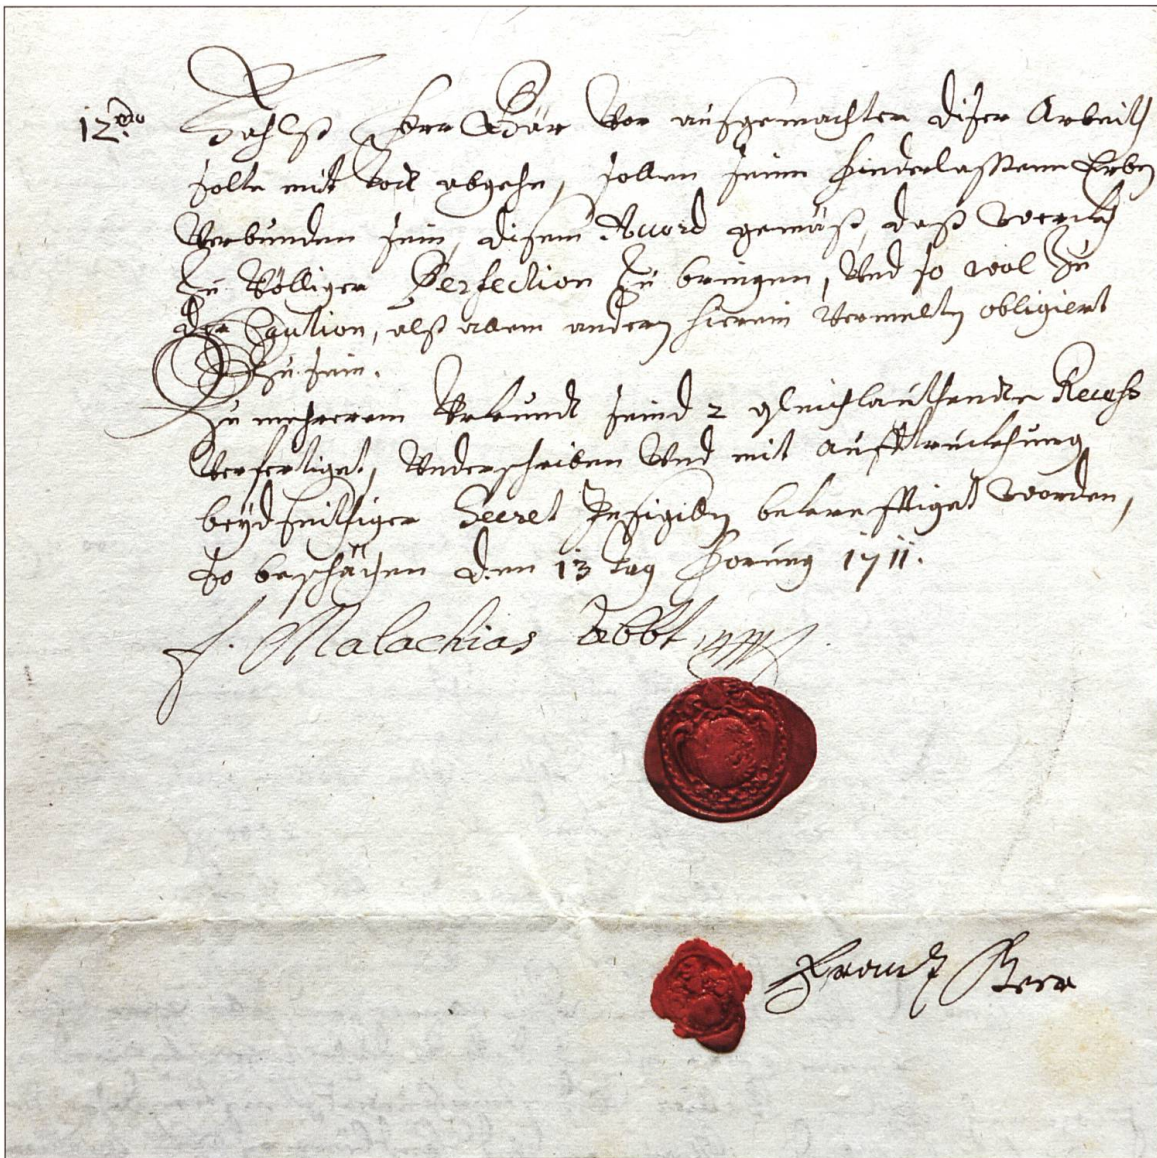 12mo Fahlß Herr Bär Vor außgemachter diser Arbeith
solte mit Todt abgehn, sollen seine hinderlassene Erben
Verbunden sein, disem Accord gemäß, daß werckh
Zu Völliger Perfection Zu bringen, Und so wol Zu
der Caution, alß allem andern hierin Vermelten obligiert
Zu sein.
Zu mehrerem Urkundt seind 2 gleichlauthende Recess
Verfertiget, Underschriben Und mit aufftruckhung
beydseithiger Secret Insiglen bekrefftiget worden,
So beschächen den 13 tag Hornung 1711.
f. Malachias Abbt
Frantz Beer